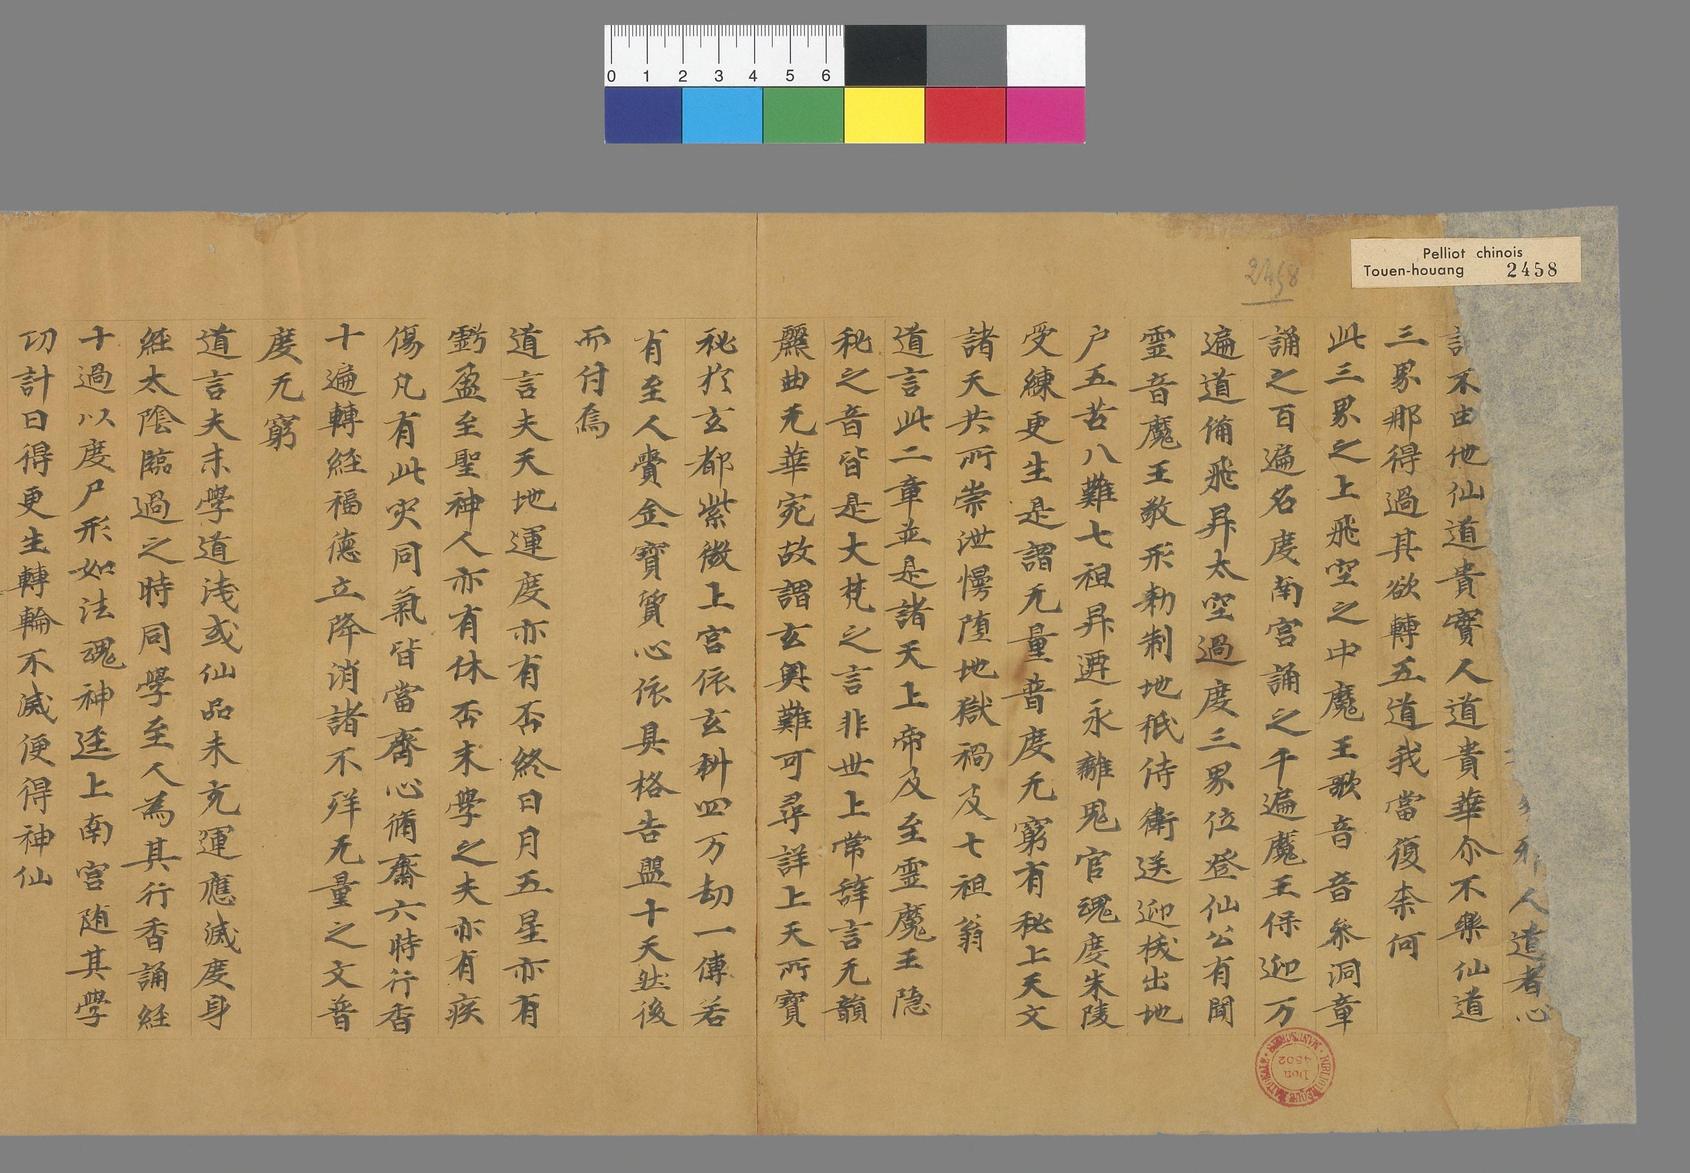 0 1 2 3 4 5 6
Pelliot chinois
Touen-houang 2458
2458
人道者心
不由他仙道貴實人道貴華尒不樂仙道
三界那得過其欲轉五道我當復柰何
此三界之上飛空之中魔王歌音音參洞章
誦之百遍名度南宮誦之千遍魔王保迎万
遍道備飛昇太空過度三界位登仙公有聞
靈音魔王敬形勑制地祇侍衛送迎拔出地
户五苦八難七祖昇遷永離鬼官魂度朱陵
受練更生是謂无量普度无窮有秘上天文
諸天共所崇泄慢堕地獄禍及七祖翁
道言此二章並是諸天上帝及至靈魔王隐
秘之音皆是大梵之言非世上常辝言无韻
麗曲无華宛故謂玄奥難可尋詳上天所寳
秘於玄都紫微上宮依玄科四万劫一傳若
有至人賷金寳質心依具格告盟十天然後
而付焉
道言夫天地運度亦有否終日月五星亦有
虧盈至聖神人亦有休否末學之夫亦有疾
傷凡有此灾同氣皆當齋心脩齋六時行香
十遍轉経福德立降消諸不祥无量之文普
度无窮
道言夫末學道浅或仙品未充運應滅度身
経太陰臨過之時同學至人為其行香誦経
十過以度尸形如法魂神逕上南宮随其學
功計日得更生轉輪不滅便得神仙
BIBLIOTHEQUE NATIONALE MANUSCRITS
Don
4502